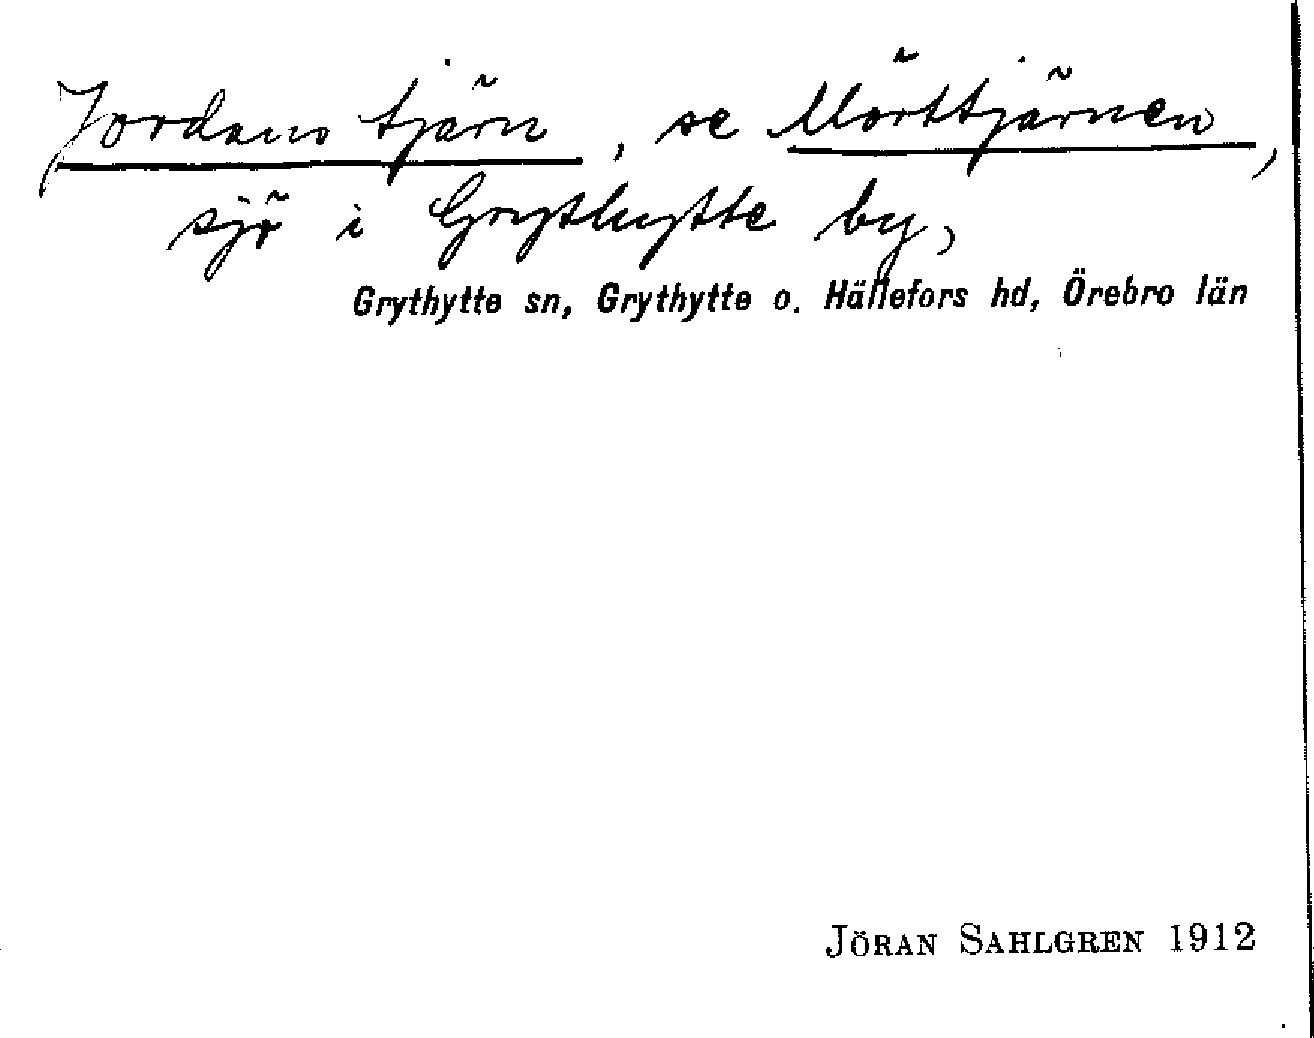 Jordans tjärn, se Mörttjärnen,
sjö i Grythytte by,
Grythytte sn, Grythytte o. Hällefors hd, Örebro län
JÖRAN SAHLGREN 1912